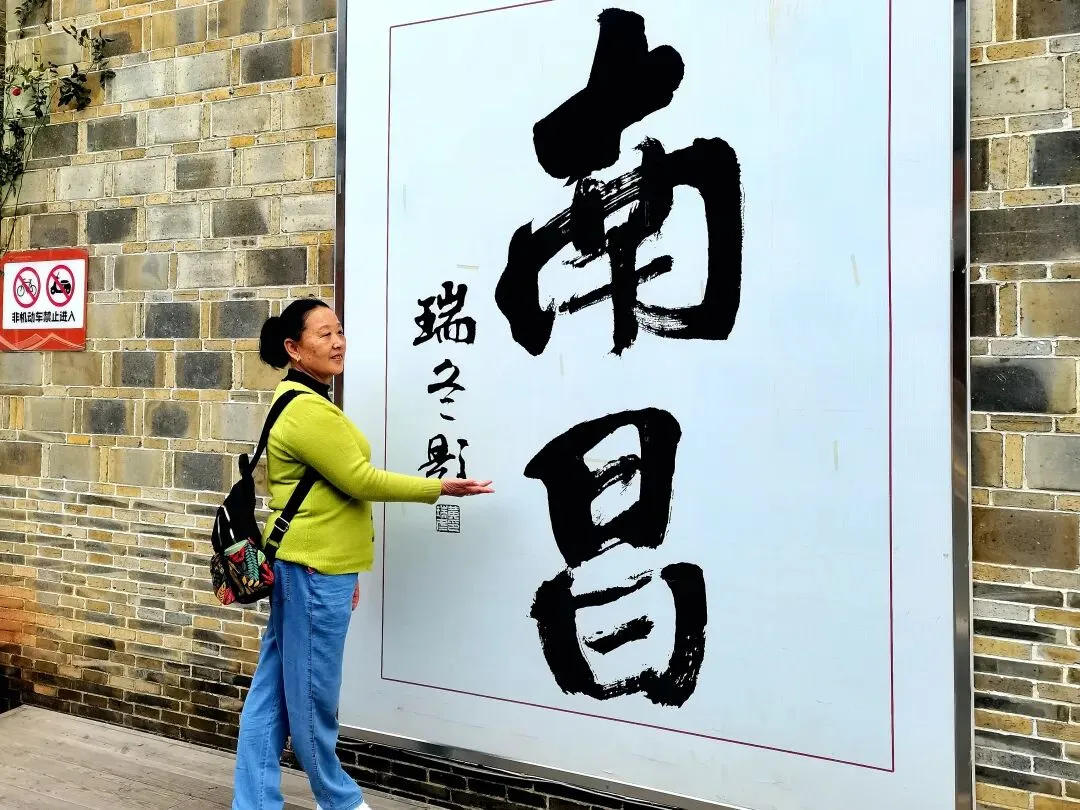 南昌
瑞冬题
非机动车禁止进入